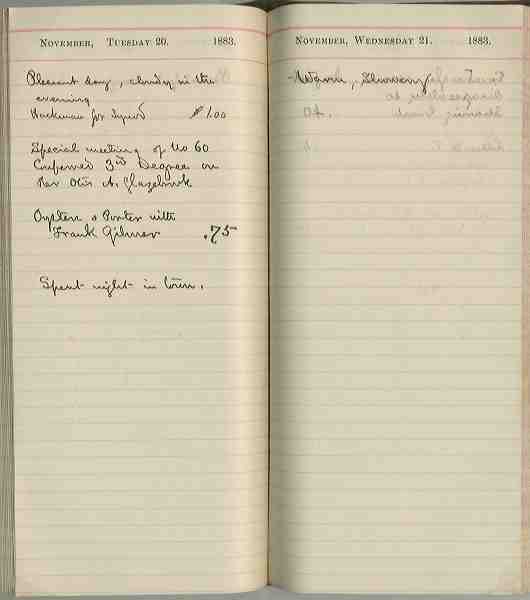 November, Tuesday 20. 1883.
Pleasant day, cloudy in the
evening
Workman for Squire $1.00
Special meeting of No 60
Conferred 3rd Degree on
Rev Otis A. Glazebrook
Oysters & Porter with
Frank Gilmer .75
Spent night in town.
November, Wednesday 21. 1883.
Showery